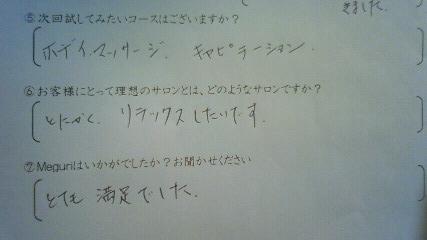 きました.
⑤次回試してみたいコースはございますか？
ボディ.マッサージ. キャビテーション.
⑥お客様にとって理想のサロンとは、どのようなサロンですか？
とにかく. リラックスしたいです.
⑦Meguriはいかがでしたか？お聞かせください
とても 満足でした.